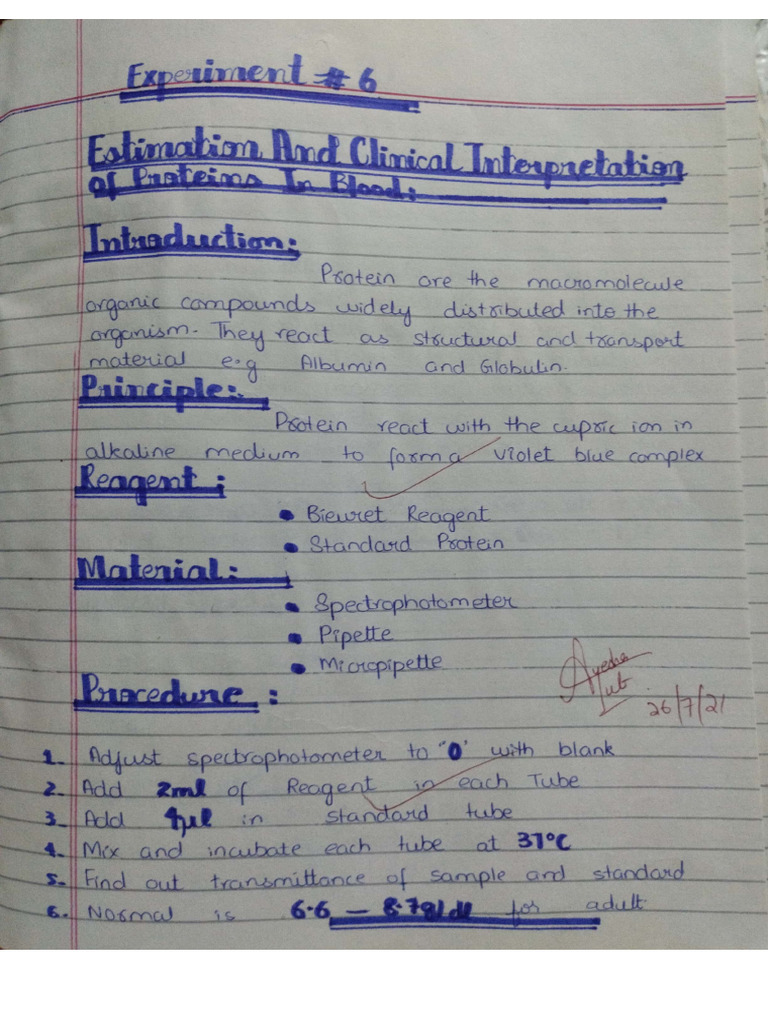 Experiment # 6
Estimation And Clinical Interpretation
of Proteins In Blood:
Introduction:
Protein are the macromolecule
organic compounds widely distributed into the
organism. They react as structural and transport
material e.g Albumin and Globulin.
Principle:
Protein react with the cupric ion in
alkaline medium to form a violet blue complex
Reagent:
• Bieuret Reagent
• Standard Protein
Material:
• Spectrophotometer
• Pipette
• Micropipette
Procedure:
26/7/21
1. Adjust spectrophotometer to "0" with blank
2. Add 2ml of Reagent in each Tube
3. Add in standard tube
4. Mix and incubate each tube at 37°C
5. Find out transmittance of sample and standard
6. Normal is 6.6 — 8.7g/dl for adult